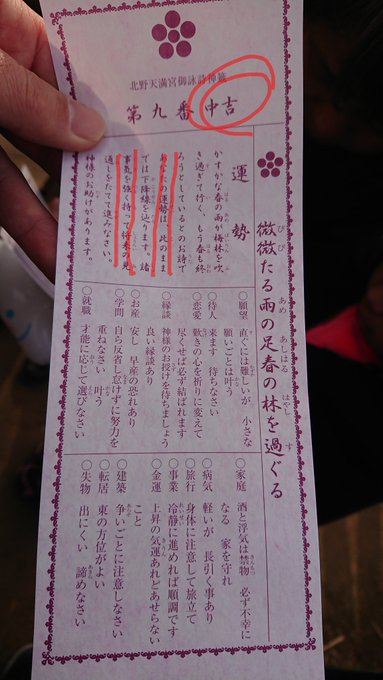 北野天満宮御詠詩神籤
第九番 中吉
微微たる雨の足春の林を過ぐる
運勢
かすかな春の雨が梅林を吹
き過ぎて行く、もう春も終
ろうとしているとのお詩で
あなたの運勢は、此のまま
では下降線を辿ります。諸
事気を強く持って将来の見
通しをたてて進みなさい。
神様のお助けがあります。
○願望 直ぐには難しいが 小さな
願いごとは叶う
○待人 来ます 待ちなさい
○恋愛 歎きの心を祈りに変えて
尽くせば必ず結ばれます
○縁談 神様のお授けを待ちましょう
良い縁談あり
○お産 安し 早産の恐れあり
○学問 自ら反省し怠けずに努力を
重ねなさい 叶う
○就職 才能に応じて選びなさい
○家庭 酒と浮気は禁物 必ず不幸に
なる 家を守れ
○病気 軽いが 長引く事あり
○旅行 身体に注意して旅立て
○事業 冷静に進めれば順調です
○金運 上昇の気運あれどあせらない
こと
○建築 争いごとに注意しなさい
○転居 東の方位がよい
○失物 出にくい 諦めなさい